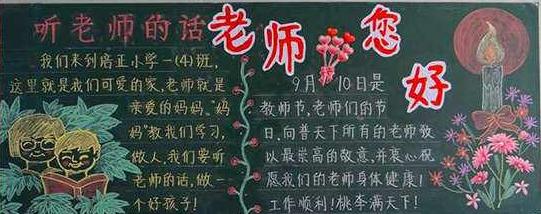 听老师的话
我们来到培正小学一(4)班,
这里就是我们可爱的家,老师就是
亲爱的妈妈。“妈
妈”教我们学习,
做人,我们要听
老师的话,做一
个好孩子!
老师您好
9月10日是
教师节,老师们的节
日,向普天下所有的老师致
以最崇高的敬意,并衷心祝
愿我们的老师身体健康!
工作顺利!桃李满天下!